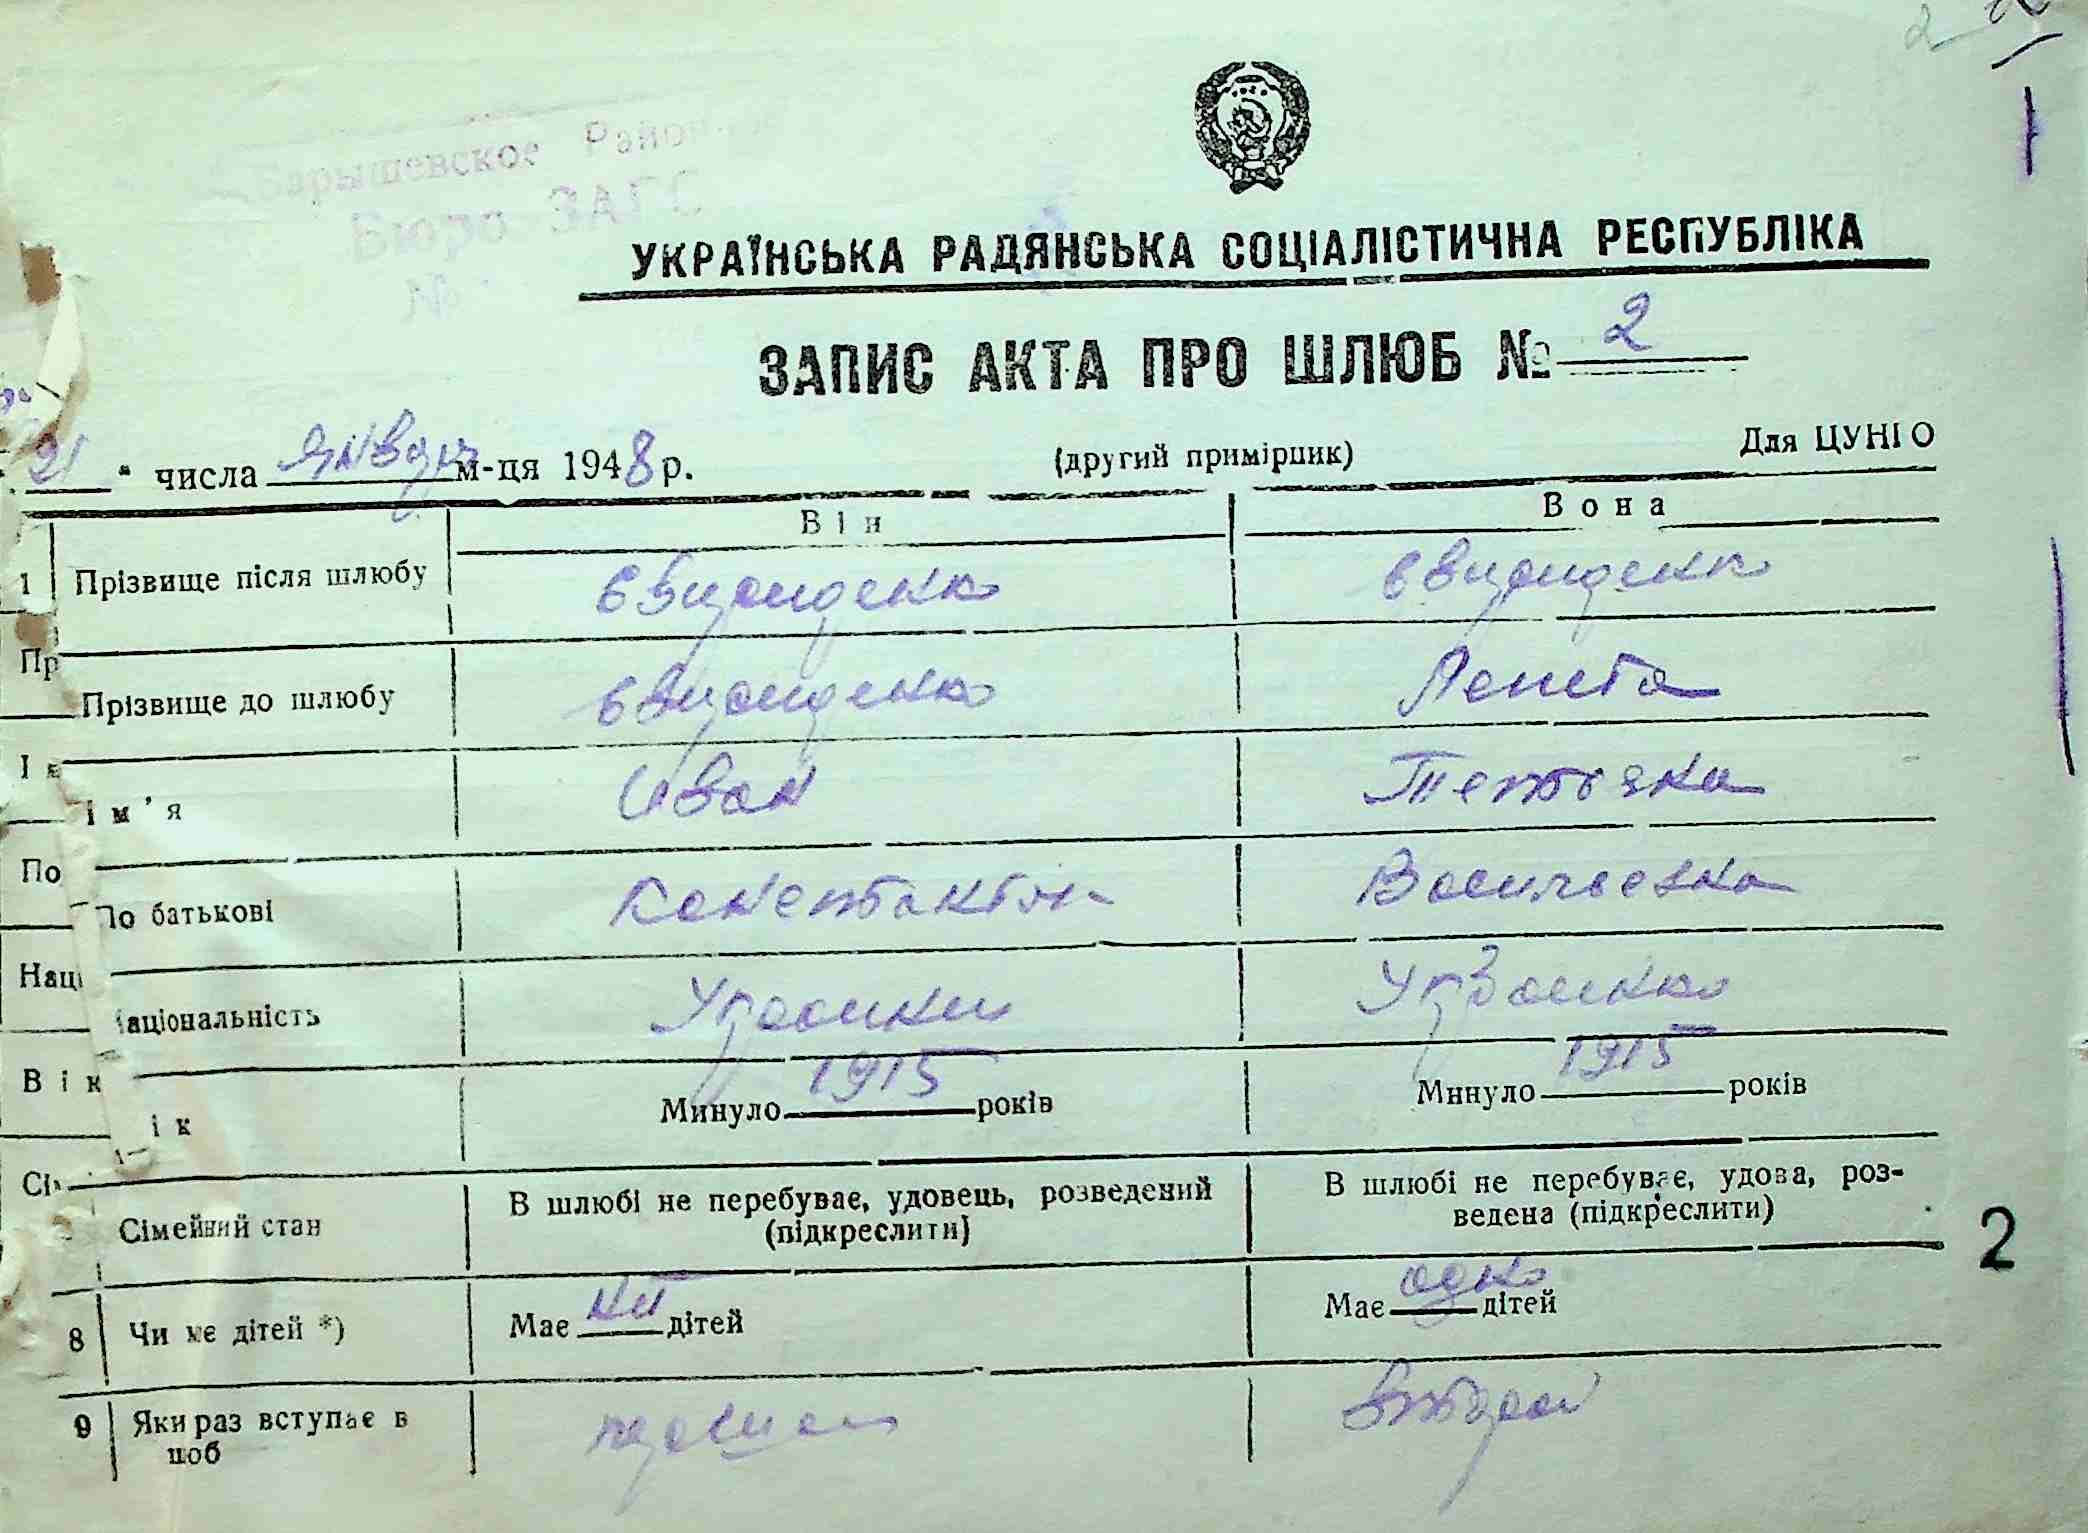 2
Барышевское Район
Бюро ЗАГС
№
УКРАЇНСЬКА РАДЯНСЬКА СОЦІАЛІСТИЧНА РЕСПУБЛІКА
ЗАПИС АКТА ПРО ШЛЮБ № 2
21 " числа Января м-ця 1948 р. (другий примірник) Для ЦУНГО
Він Вона
1 Прізвище після шлюбу
Пр
Прізвище до шлюбу
Ім'я Иван Татьяна
По
По батькові Константин Васильевна
Наці
Національність Украинец Украинка
Вік
ік Минуло 1915 років Минуло 1915 років
Сі
Сімейний стан В шлюбі не перебуває, удовець, розведений (підкреслити) В шлюбі не перебуває, удова, роз-
ведена (підкреслити)
2
8 Чи має дітей *) Має нет дітей Має одно дітей
9 Який раз вступає в второй
шоб